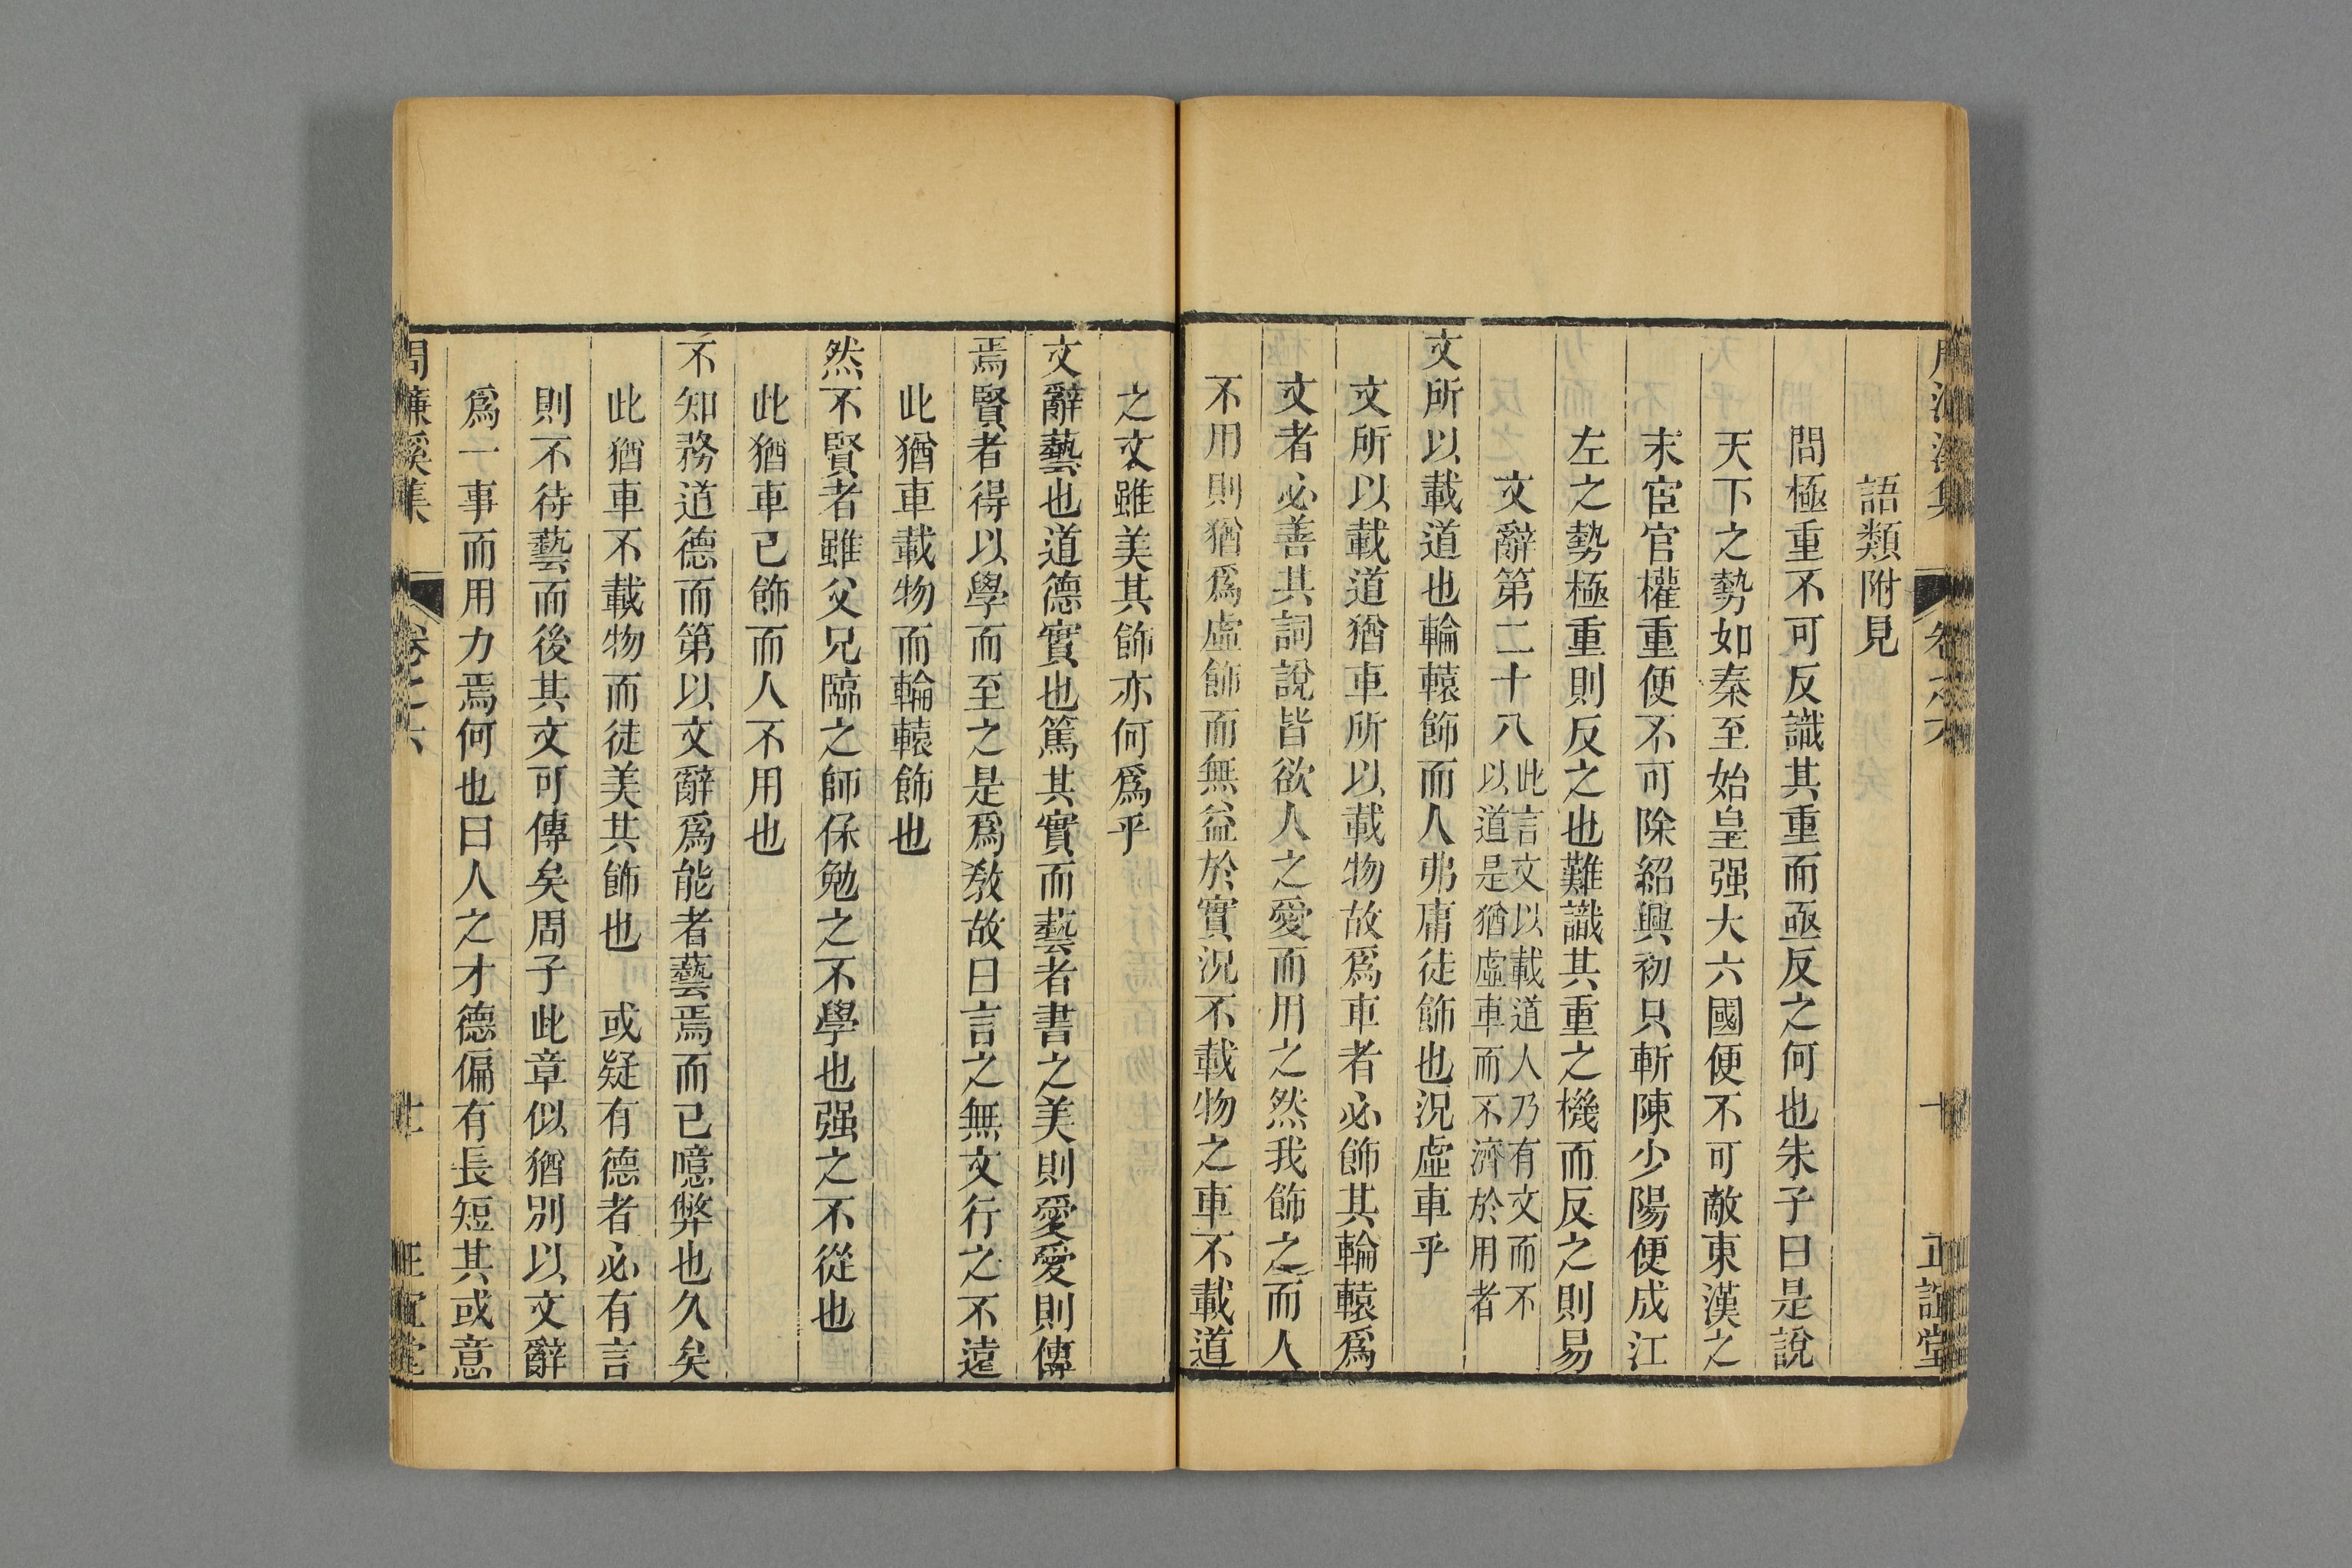 語類附見
問極重不可反識其重而亟反之何也朱子曰是說
天下之勢如秦至始皇强大六國便不可敵東漢之
末宦官權重便不可除紹興初只斬陳少陽便成江
左之勢極重則反之也難識其重之機而反之則易
文辭第二十八此言文以載道人乃有文而不
以道是猶虛車而不濟於用者
文所以載道也輪轅飾而人弗庸徒飾也況虛車乎
文所以載道猶車所以載物故爲車者必飾其輪轅爲
文者必善其詞說皆欲人之愛而用之然我飾之而人
不用則猶爲虛飾而無益於實況不載物之車不載道
之文雖美其飾亦何爲乎
文辭藝也道德實也篤其實而藝者書之美則愛愛則傳
焉賢者得以學而至之是爲敎故曰言之無文行之不遠
此猶車載物而輪轅飾也
然不賢者雖父兄臨之師保勉之不學也强之不從也
此猶車已飾而人不用也
不知務道德而第以文辭爲能者藝焉而已噫弊也久矣
此猶車不載物而徒美其飾也　或疑有德者必有言
則不待藝而後其文可傳矣周子此章似猶別以文辭
爲一事而用力焉何也曰人之才德偏有長短其或意
周濂溪集　卷之六